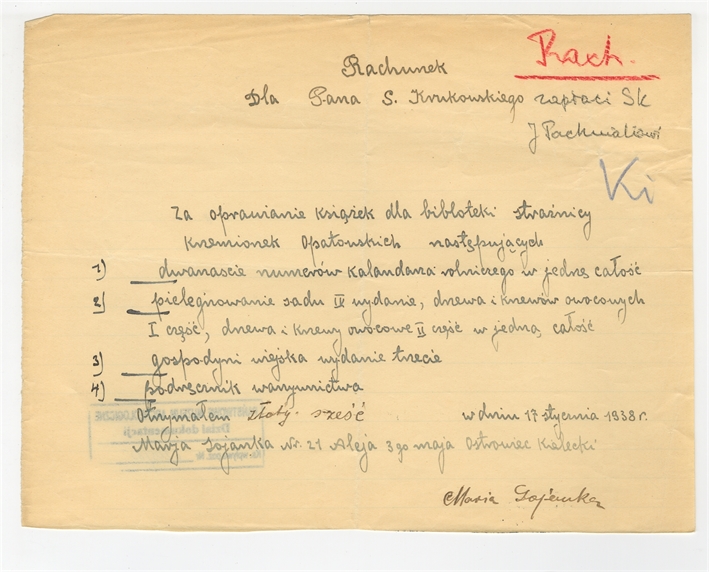 Rach.
Rachunek
Dla Pana S. Krukowskiego zapłaci Sk
J Pachniakowi
Ki
Za oprawianie książek dla bibloteki strażnicy
Krzemionek Opatowskich następujących
1) dwanascie numerów Kalandarza rolniczego w jedną całość
2) pielęginowanie sadu IV wydanie, drzewa i krzewów owocowych
I część, drzewa i krzewy owocowe II część w jedną całość
3) gospodyni wiejska wydanie trzecie
4) podręcznik warzywnictwa
Otrzymałem złoty. sześć w dniu 17 stycznia 1938 r.
Marja Sojanka Nr. 21 Aleja 3go maja Ostrowiec Kielecki
Maria